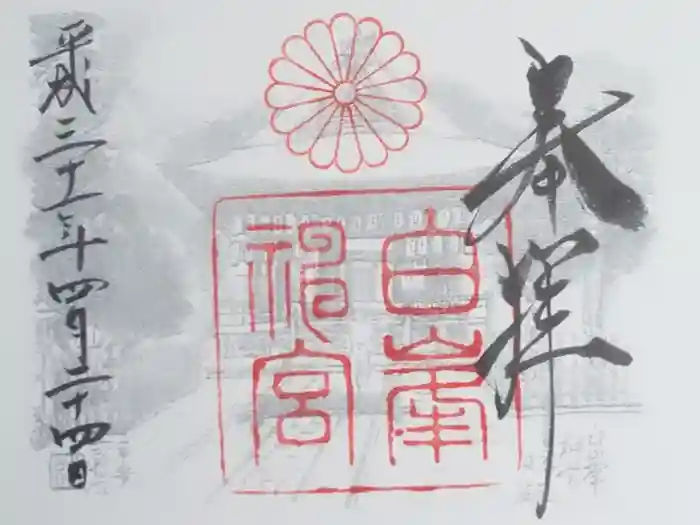 奉拝
白峯
神宮
平成三十一年四月二十四日